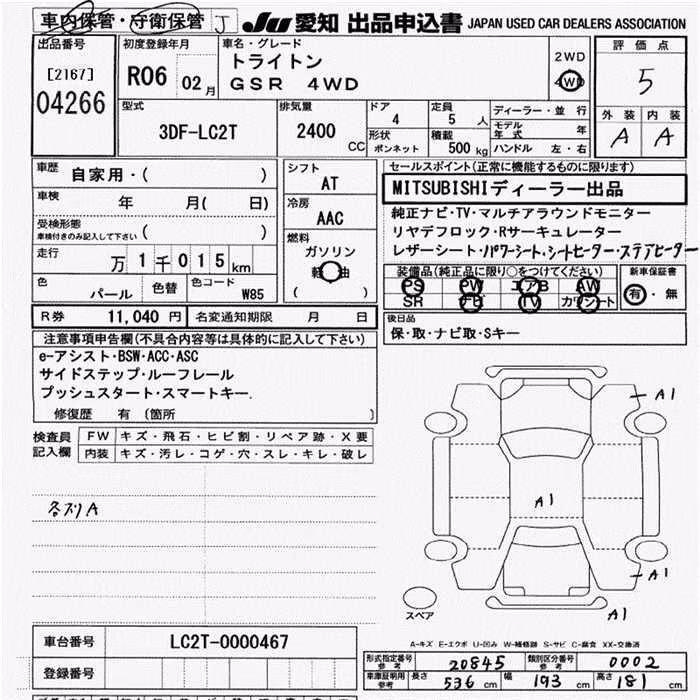 車内保管・守衛保管 J JU 愛知 出品申込書 JAPAN USED CAR DEALERS ASSOCIATION
出品番号
[2167]
04266
初度登録年月
R06 02月
車名・グレード
トライトン
GSR 4WD
2WD
4WD
評価点
5
外装 内装
A A
型式
3DF-LC2T
排気量
2400 CC
ドア
4
定員
5 人
形状
ボンネット
積載
500 kg
ディーラー・並行
モデル年式 年
ハンドル 左・右
車歴
自家用・( )
車検
年 月( 日)
受検形態
車検付きのみ記入して下さい ( )
走行
万 1千015km
色
パール
色替
色コード
W85
シフト
AT
冷房
AAC
燃料
ガソリン
軽油
( )
セールスポイント(正常に機能するものに限ります)
MITSUBISHIディーラー出品
純正ナビ・TV・マルチアラウンドモニター
リヤデフロック・Rサーキュレーター
レザーシート・パワーシート・シートヒーター・ステアヒーター
装備品(純正品に限り○をつけてください)
PS PW エアB AW
SR ナビ TV カワシート
新車保証書
有・無
R券 11,040 円 名変通知期限 月 日
後日品
保・取・ナビ取・Sキー
注意事項申告欄(不具合内容等は具体的に記入して下さい)
e-アシスト・BSW・ACC・ASC
サイドステップ・ルーフレール
プッシュスタート・スマートキー.
修復歴 有 (箇所 )
検査員記入欄
FW キズ・飛石・ヒビ割・リペア跡・X要
内装 キズ・汚レ・コゲ・穴・スレ・キレ・破レ
各ズリA
A1
A1
A1
A1
スペア
A-キズ E-エクボ U-凹み W-補修跡 S-サビ C-腐食 XX-交換済
車台番号 LC2T-0000467
登録番号
形式指定番号 参考 20845 類別区分番号 参考 0002
車庫証明用 参考 長さ 536 cm 幅 193 cm 高さ 181 cm